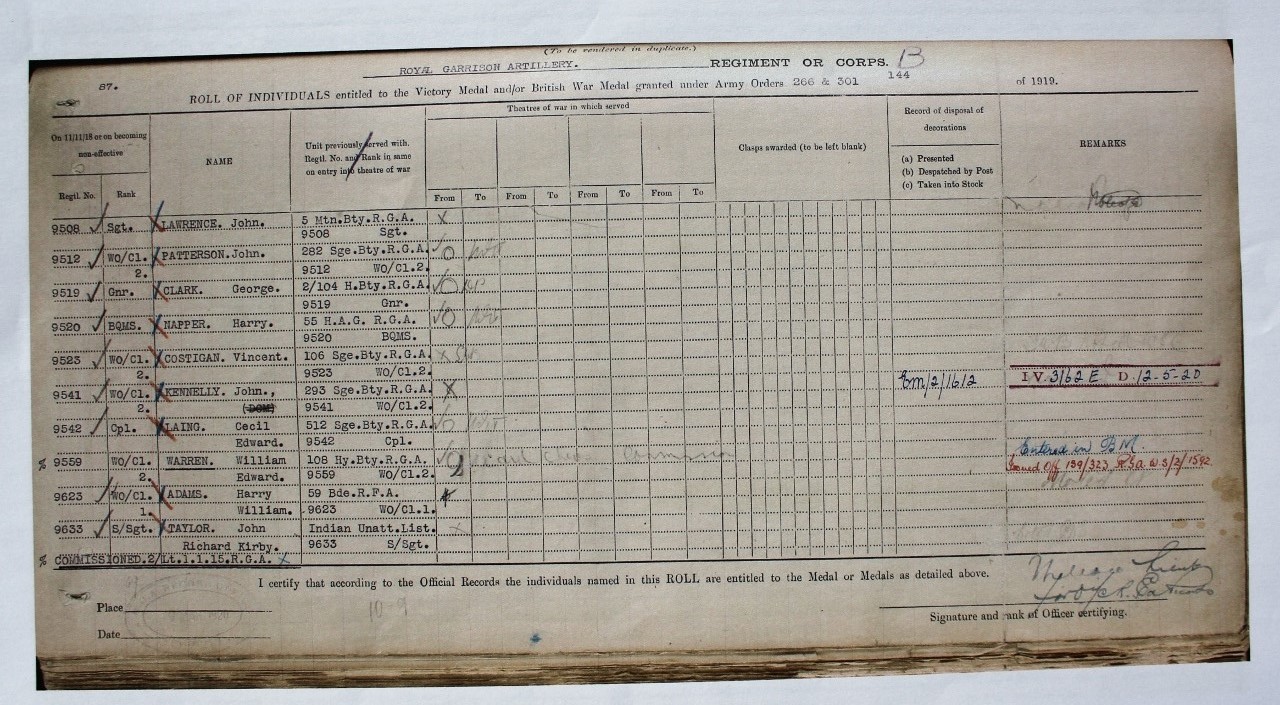 (To be rendered in duplicate.)
ROYAL GARRISON ARTILLERY. REGIMENT OR CORPS. B
87. ROLL OF INDIVIDUALS entitled to the Victory Medal and/or British War Medal granted under Army Orders 266 & 301 144 of 1919.
On 11/11/18 or on becoming non-effective
Regtl. No. Rank
NAME
Unit previously served with. Regtl. No. and Rank in same on entry into theatre of war
Theatres of war in which served
From To From To From To From To
Clasps awarded (to be left blank)
Record of disposal of decorations
(a) Presented
(b) Despatched by Post
(c) Taken into Stock
REMARKS
9508 Sgt. LAWRENCE. John. 5 Mtn.Bty.R.G.A. X
9508 Sgt.
9512 WO/Cl. PATTERSON. John. 282 Sge.Bty.R.G.A.
2. 9512 WO/Cl.2.
9519 Gnr. CLARK. George. 2/104 H.Bty.R.G.A.
9519 Gnr.
9520 BQMS. NAPPER. Harry. 55 H.A.G. R.G.A.
9520 BQMS.
9523 WO/Cl. COSTIGAN. Vincent. 106 Sge.Bty.R.G.A. X
2. 9523 WO/Cl.2.
9541 WO/Cl. KENNELLY. John., 293 Sge.Bty.R.G.A. X Em/2/1612 I.V. 3162 E D. 12-5-20
2. (DCM) 9541 WO/Cl.2.
9542 Cpl. LAING. Cecil 512 Sge.Bty.R.G.A.
Edward. 9542 Cpl. Entered in BM
% 9559 WO/Cl. WARREN. William 108 Hy.Bty.R.G.A. Issued Off 139/323 R.G.A. W.S/2/1592
2. Edward. 9559 WO/Cl.2.
9623 WO/Cl. ADAMS. Harry 59 Bde.R.F.A. X
1. William. 9623 WO/Cl.1.
9633 S/Sgt. TAYLOR. John Indian Unatt.List. X
Richard Kirby. 9633 S/Sgt.
% COMMISSIONED.2/Lt.1.1.15.R.G.A. X
I certify that according to the Official Records the individuals named in this ROLL are entitled to the Medal or Medals as detailed above.
Place
10-9
Signature and rank of Officer certifying.
Date